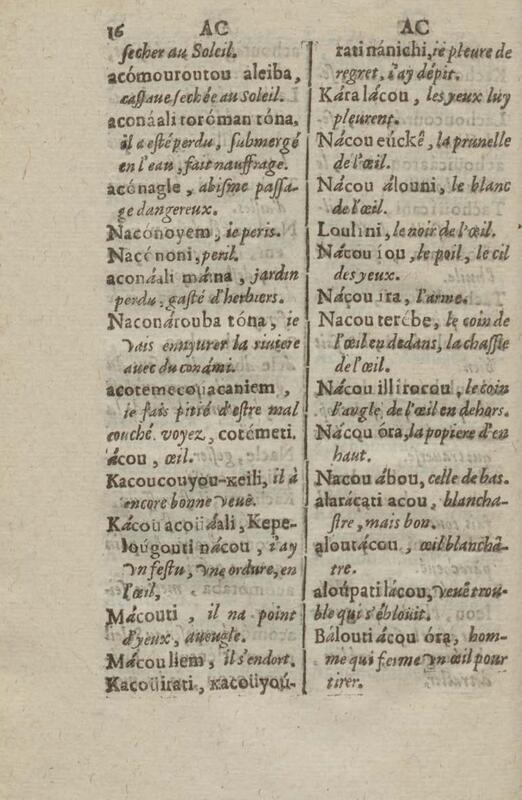 16 AC
secher au Soleil.
acómouroutou aleiba,
cassaue sechée au Soleil.
aconáali toróman tóna,
il a esté perdu, submergé
en l'eau, fait nauffrage.
acónagle, abisme passa-
ge dangereux.
Naconoyem, ie peris.
Naconnoni, peril.
aconáali máina, jardin
perdu, gasté d'herbiers.
Naconárouba tóna, ie
vais ennyurer la riuiere
auec du conámi.
acotemecoüacaniem,
ie fais pitié d'estre mal
couché. voyez, cotémeti.
ácou, œil.
Kacoucouyou-keili, il à
encore bonne veuë.
Kácou acoüáali, Kepe-
lougonti nácou, i'ay
vn festu, vne ordure, en
l'œil,
Mácouti, il na point
d'yeux, aueugle.
Mácouliem, il s'endort.
Kacoüirati, kacoüyoú-
AC
rati nánichi, ie pleure de
regret, i'ay dépit.
Kára lácou, les yeux luy
pleurent.
Nácou eúckê, la prunelle
de l'œil.
Nácou álouni, le blanc
de l'œil.
Loulini, le noir de l'œil.
Nácou iou, le poil, le cil
des yeux.
Nácou ira, l'arme.
Nacou terébe, le coin de
l'œil en dedans, la chassie
de l'œil.
Nácou illirocou, le coin
l'angle de l'œil en dehors.
Nácou óra, la popiere d'en
haut.
Nacou ábou, celle de bas.
alarácati acou, blancha-
stre, mais bon.
aloutácou, œil blanchâ-
tre.
aloúpati lácou, veuë trou-
ble qui s'éblouït.
Bálouti ácou óra, hom-
me qui ferme vn œil pour
tirer.